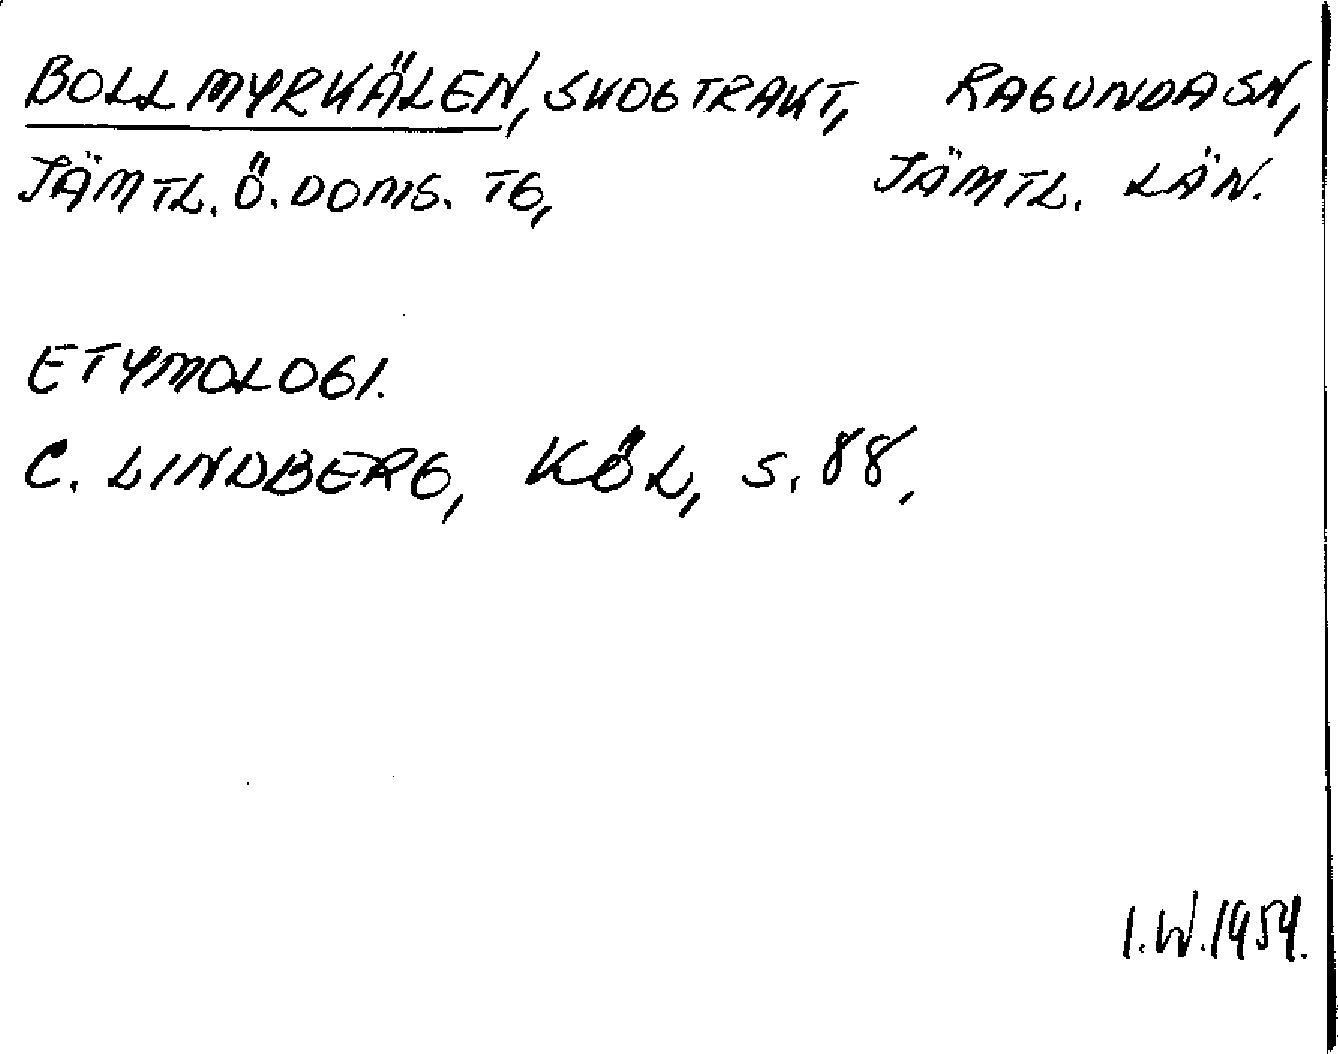 BOLLMYRKÄLEN, SKOGTRAKT, RAGUNDA SN,
JÄMTL. Ö. DOMS. TG, JÄMTL. LÄN.
ETYMOLOGI.
C. LINDBERG, KÖL, S. 88,
I.W. 1954.